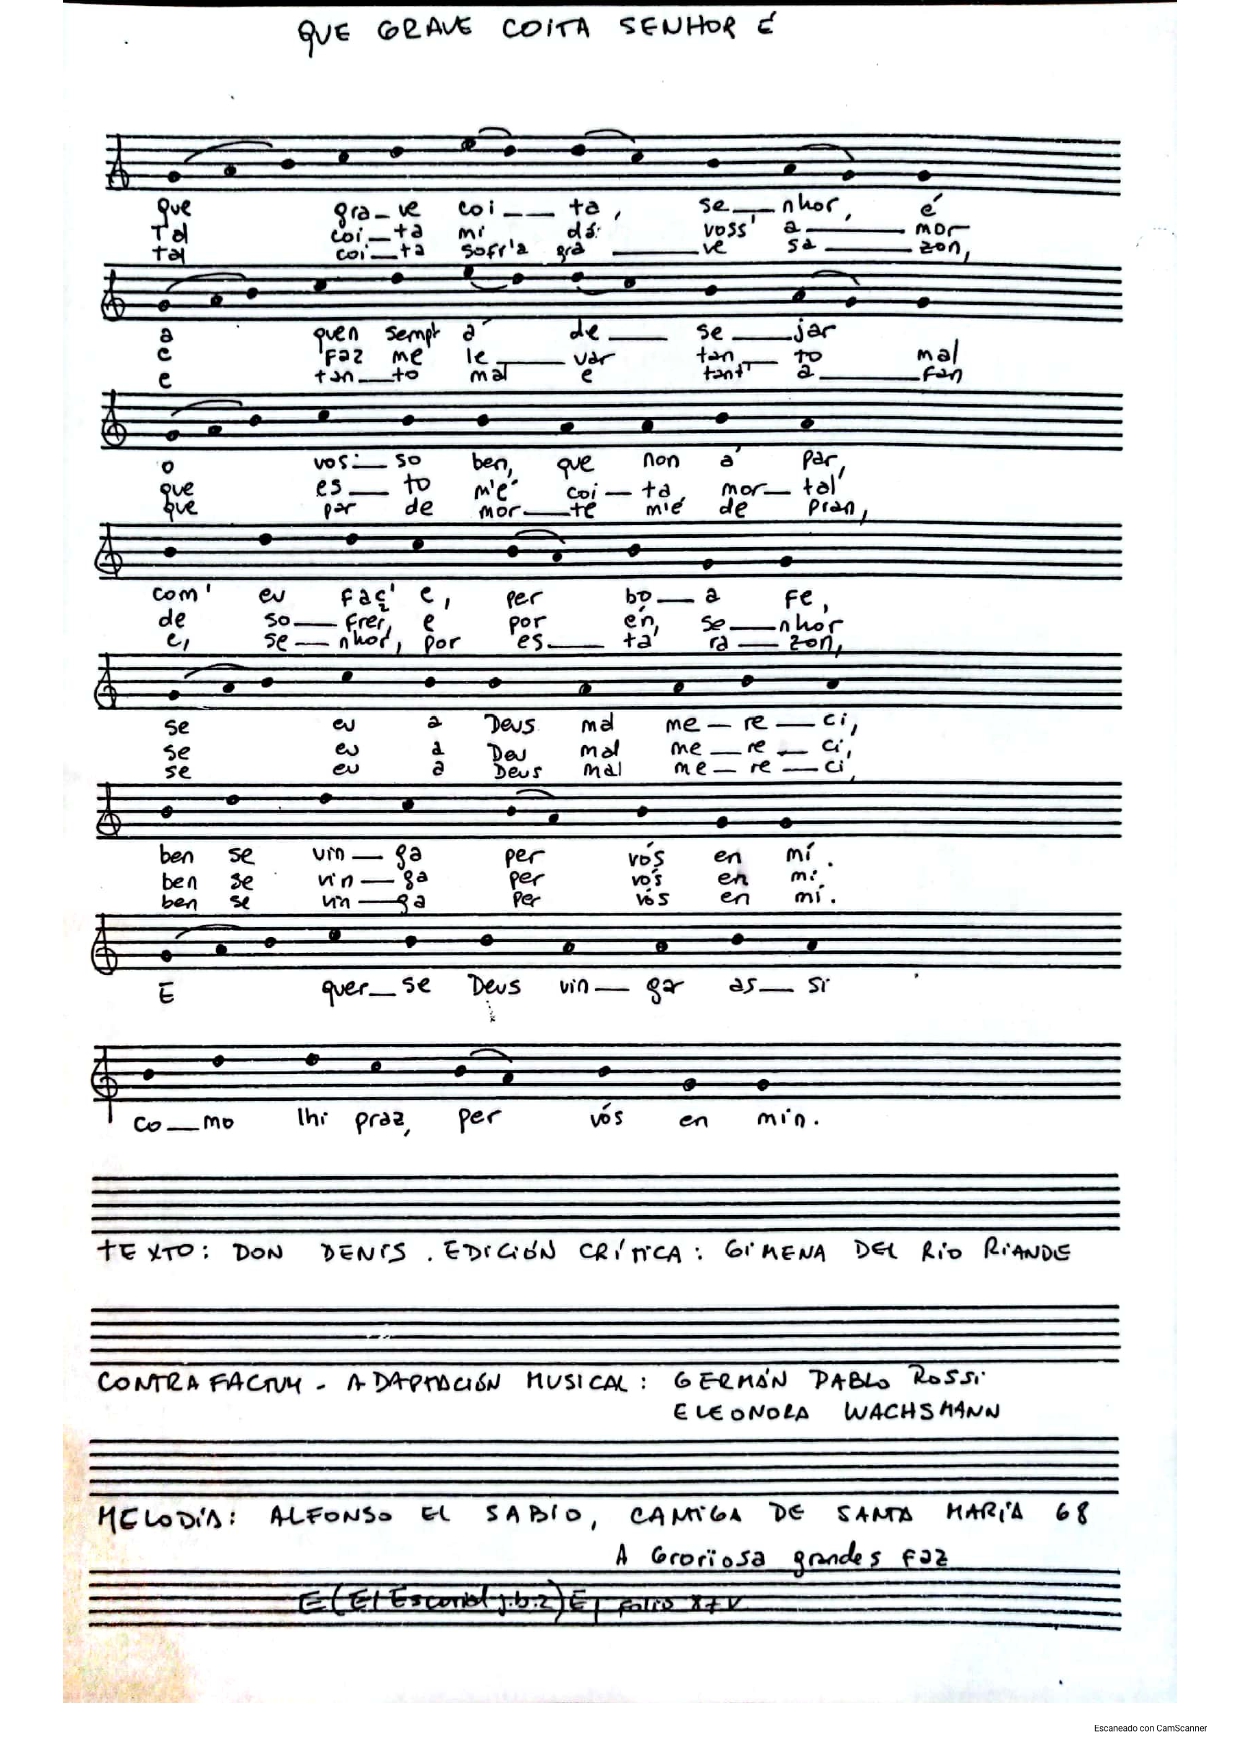 QUE GRAVE COITA SENHOR É
que gra_ve coi___ta, se___nhor, é
Tal coi_ta mi dá voss' a______mor
tal coi_ta sofr'a gra______ve sa______zon,
a quen sempr á de___se___jar
e faz me le___var tan___to mal
e tan_to mal e tant' a______fan
o vos_so ben, que non á par,
que es_to m'é coi_ta mor_tal
que par de mor_te m'é de pran,
com' eu faç' e, per bo_a fe,
de so_frer, e por én, se_nhor
e, se_nhor, por es_ta ra_zon,
se eu a Deus mal me_re_ci,
se eu a Deu mal me_re_ci,
se eu a Deus mal me_re_ci,
ben se vin_ga per vós en mí.
ben se vin_ga per vós en mi.
ben se vin_ga per vós en mí.
E quer_se Deus vin_gar as_si
co_mo lhi praz, per vós en min.
TEXTO: DON DENIS. EDICIÓN CRÍTICA: GIMENA DEL RIO RIANDE
CONTRAFACTUM - ADAPTACIÓN MUSICAL: GERMÁN PABLO ROSSI
ELEONORA WACHSMANN
MELODÍA: ALFONSO EL SABIO, CANTIGA DE SANTA MARÍA 68
A Groriosa grandes faz
E (El Escorial j.b.2) E, folio 87v
Escaneado con CamScanner